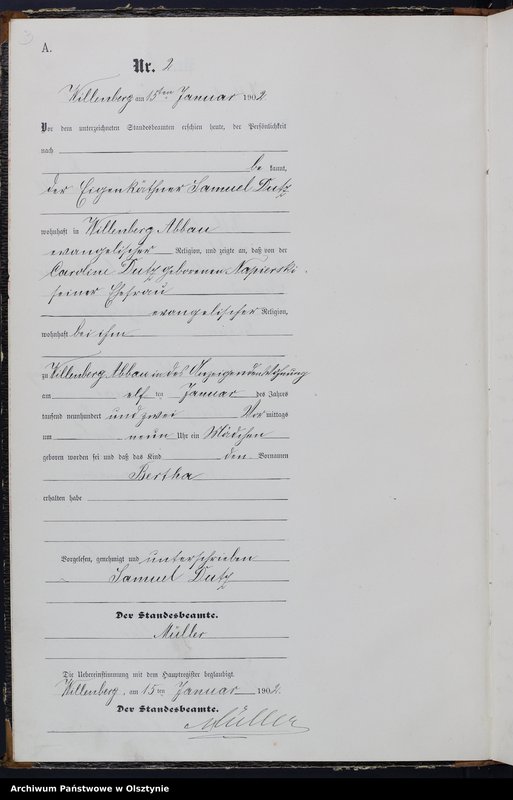 A.
Nr. 2
Willenberg am 15ten Januar 1902.
Vor dem unterzeichneten Standesbeamten erschien heute, der Persönlichkeit
nach
be kannt,
der Eigenkäthner Samuel Dutz
wohnhaft in Willenberg Abbau
evangelischer Religion, und zeigte an, daß von der
Caroline Dutz geborenen Napierski
seiner Ehefrau
evangelischer Religion,
wohnhaft bei ihm
zu Willenberg Abbau in des Anzeigenden Wohnung
am elf ten Januar des Jahres
tausend neunhundert und zwei Vor mittags
um neun Uhr ein Mädchen
geboren worden sei und daß das Kind den Vornamen
Bertha
erhalten habe
Vorgelesen, genehmigt und unterschrieben
Samuel Dutz
Der Standesbeamte.
Müller
Die Uebereinstimmung mit dem Hauptregister beglaubigt.
Willenberg, am 15ten Januar 1902.
Der Standesbeamte.
Müller
Archiwum Państwowe w Olsztynie